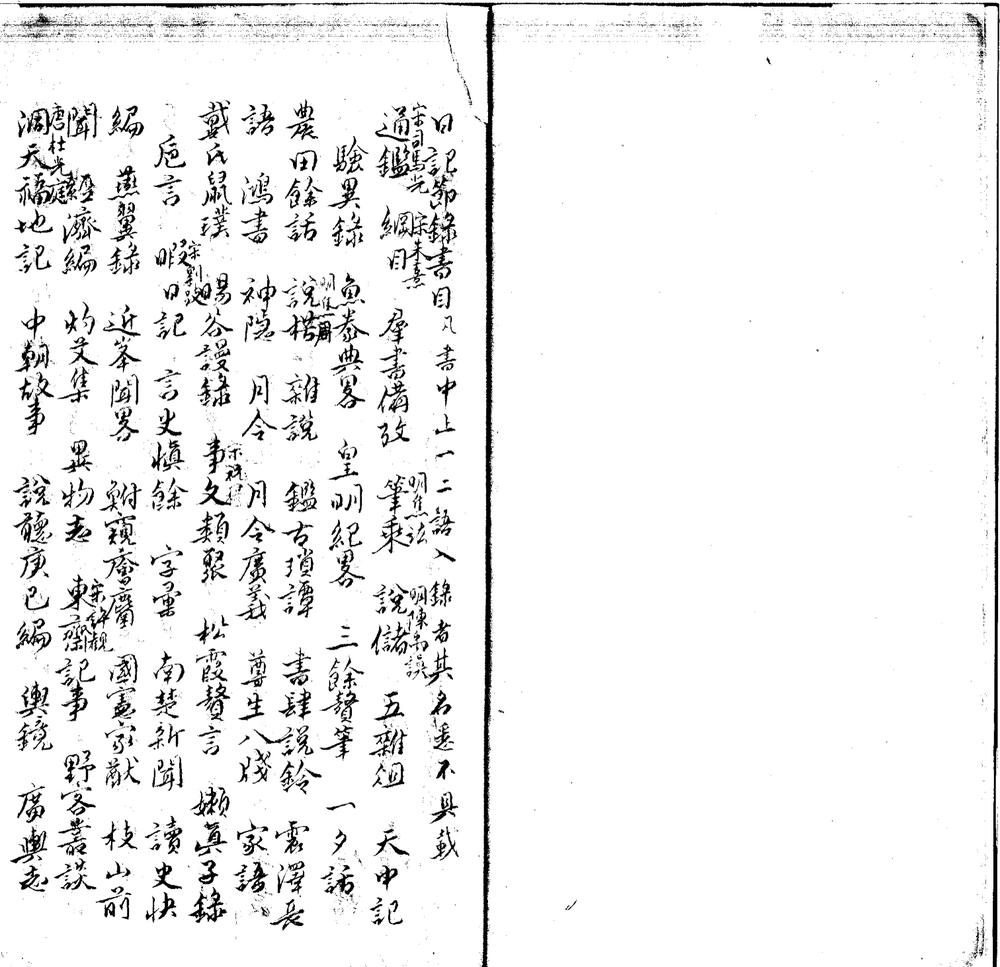 日記節錄書目凡書中止一二語入錄者其名悉不具載
通鑑宋司馬光 綱目宋朱熹 羣書備攷 筆乘明焦竑 說儲明陳禹謨 五雜俎 天中記
驗異錄 魚豢典畧 皇明紀畧 三餘贅筆 一夕話
農田餘話 說楛明焦周 雜說 鑑古瑣譚 書肆說鈴 震澤長
語 鴻書 神隱 月令 月令廣義 尊生八牋 家語
戴氏鼠璞 暘谷謾錄 事文類聚宋祝穆 松霞贅言 嬾真子錄
巵言 暇日記宋劉跂 言史慎餘 字彙 南楚新聞 讀史快
編 燕翼錄 近峯聞畧 對窺奮 國憲家猷 枝山前
聞 經濟編 灼艾集 異物志 東齋記事宋許觀 野客叢談
洞天福地記唐杜光庭 中朝故事 說聽庚巳編 輿鏡 廣輿志